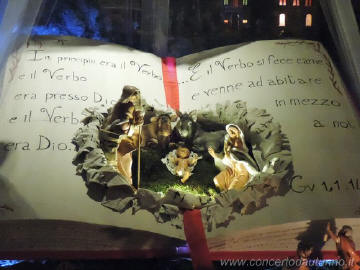 In principio era il Verbo
e il Verbo
era presso Dio
e il Verbo
era Dio.
...E il Verbo si fece carne
e venne ad abitare
in mezzo
a noi.
Gv 1,1.14
www.concertodautunno.it